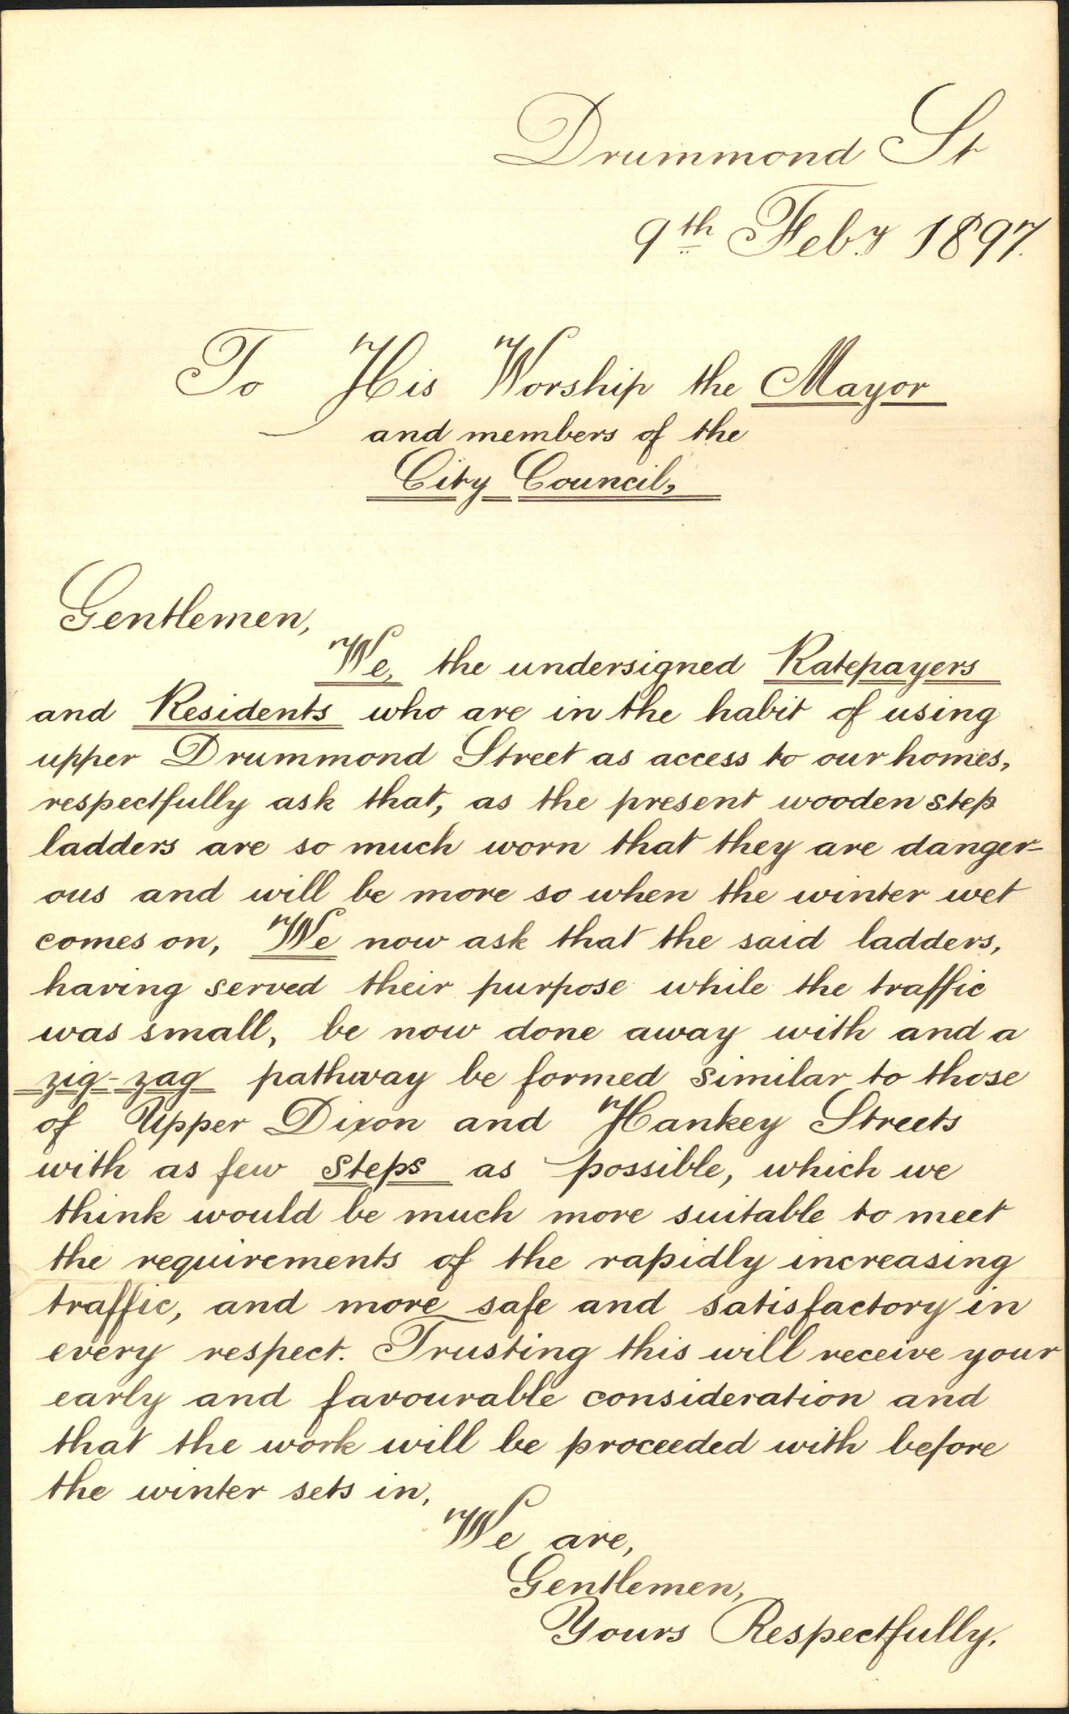 Drummond St
9th Feby 1897.
To His Worship the Mayor
and members of the
City Council,
Gentlemen,
We, the undersigned Ratepayers
and Residents who are in the habit of using
upper Drummond Street as access to our homes,
respectfully ask that, as the present wooden step
ladders are so much worn that they are danger-
ous and will be more so when the winter wet
comes on, We now ask that the said ladders,
having served their purpose while the traffic
was small, be now done away with and a
zig-zag pathway be formed similar to those
of Upper Dixon and Hankey Streets
with as few steps as possible, which we
think would be much more suitable to meet
the requirements of the rapidly increasing
traffic, and more safe and satisfactory in
every respect. Trusting this will receive your
early and favourable consideration and
that the work will be proceeded with before
the winter sets in,
We are,
Gentlemen,
Yours Respectfully.